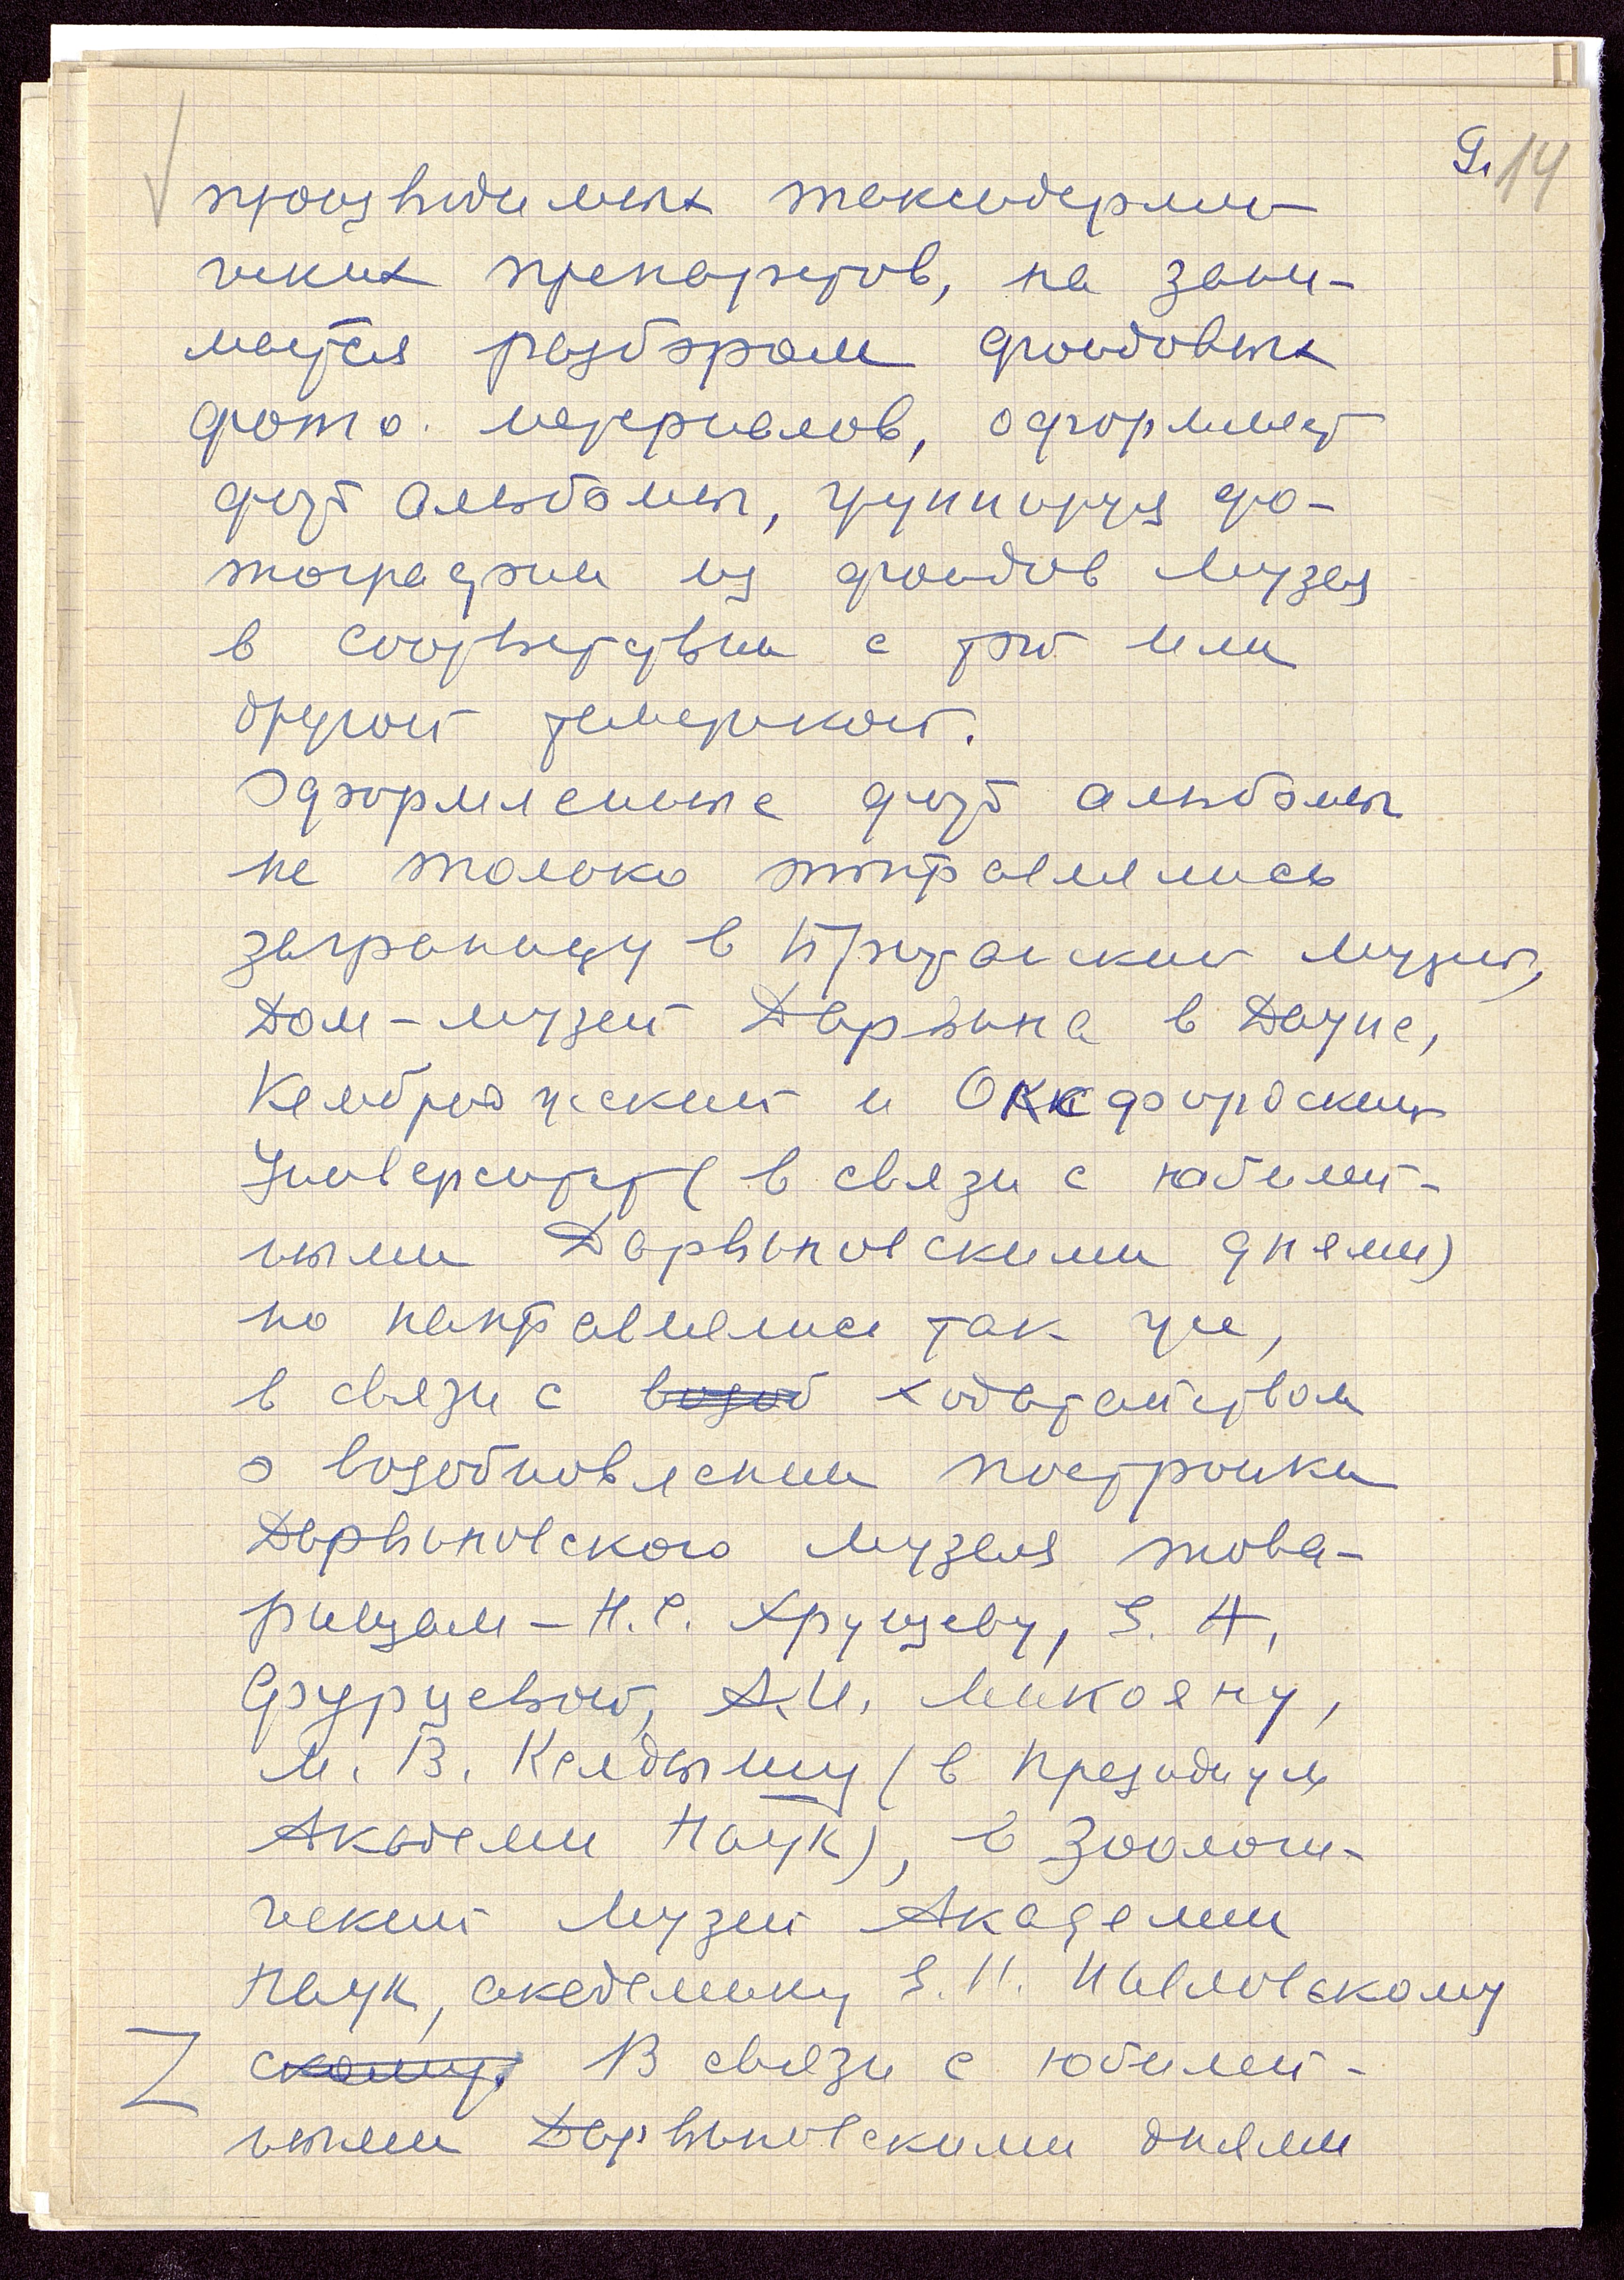 9. 14
производимых таксидерми
ческих препаратов, но зани-
мается разбором фондовых
фото. материалов, оформляет
фото альбомы, группируя фо-
тографии из фондов Музея
в соответствии с той или
другой тематикой.
Оформленные фото альбомы
не только отправлялись
заграницу в Британский музей,
Дом-музей Дарвина в Дауне,
Кембриджский и Оксфордский
Университет (в связи с юбилей-
ными Дарвиновскими днями)
но направлялись так же,
в связи с возоб ходатайством
о возобновлении постройки
Дарвиновского музея това-
рищам – Н.С. Хрущеву, Е. А.
Фурцевой, А.И. Микояну,
М. В. Келдышу (в Президиум
Академии Наук), в Зоологи-
ческий Музей Академии
Наук, академику Е.Н. Павловскому
скому. В связи с юбилей-
ными Дарвиновскими днями